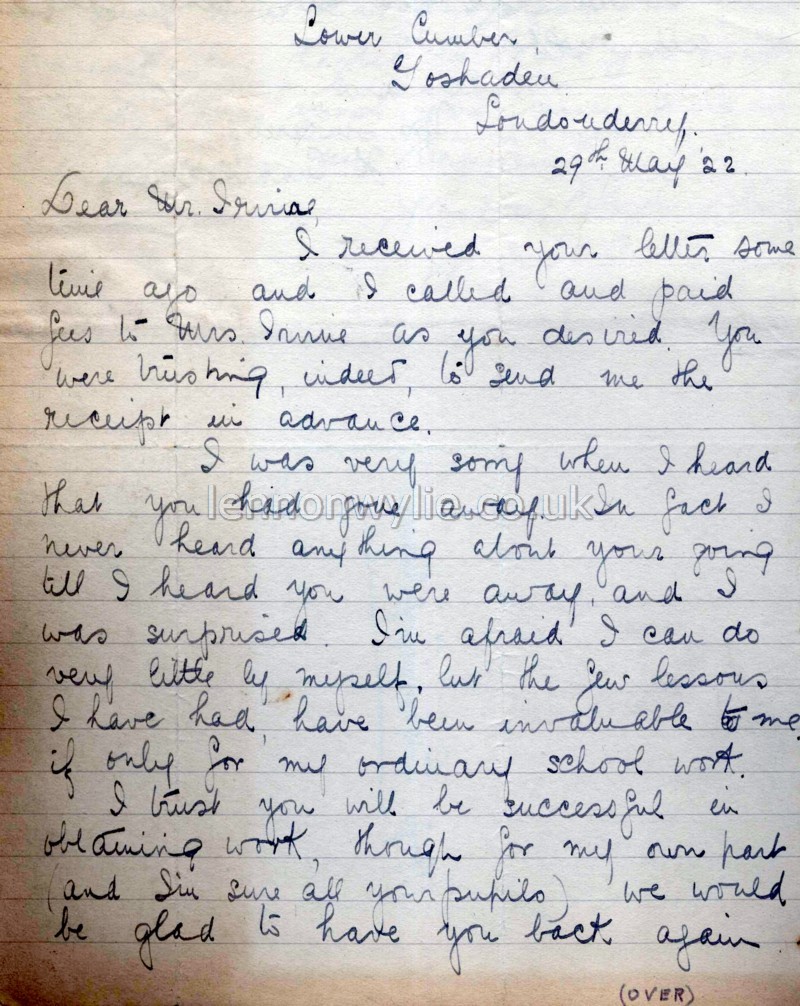 Lower Cumber,
Goshaden
Londonderry,
29th May '22.
Dear Mr. Irvine,
I received your letter some
time ago and I called and paid
fees to Mrs. Irvine as you desired. You
were trusting, indeed, to send me the
receipt in advance.
I was very sorry when I heard
that you had gone away. In fact I
never heard anything about your going
till I heard you were away, and I
was surprised. I'm afraid I can do
very little by myself, but the few lessons
I have had, have been invaluable to me,
if only for my ordinary school work.
I trust you will be successful in
obtaining work, though for my own part
(and I'm sure all your pupils) we would
be glad to have you back again
(OVER)
lennonwylie.co.uk